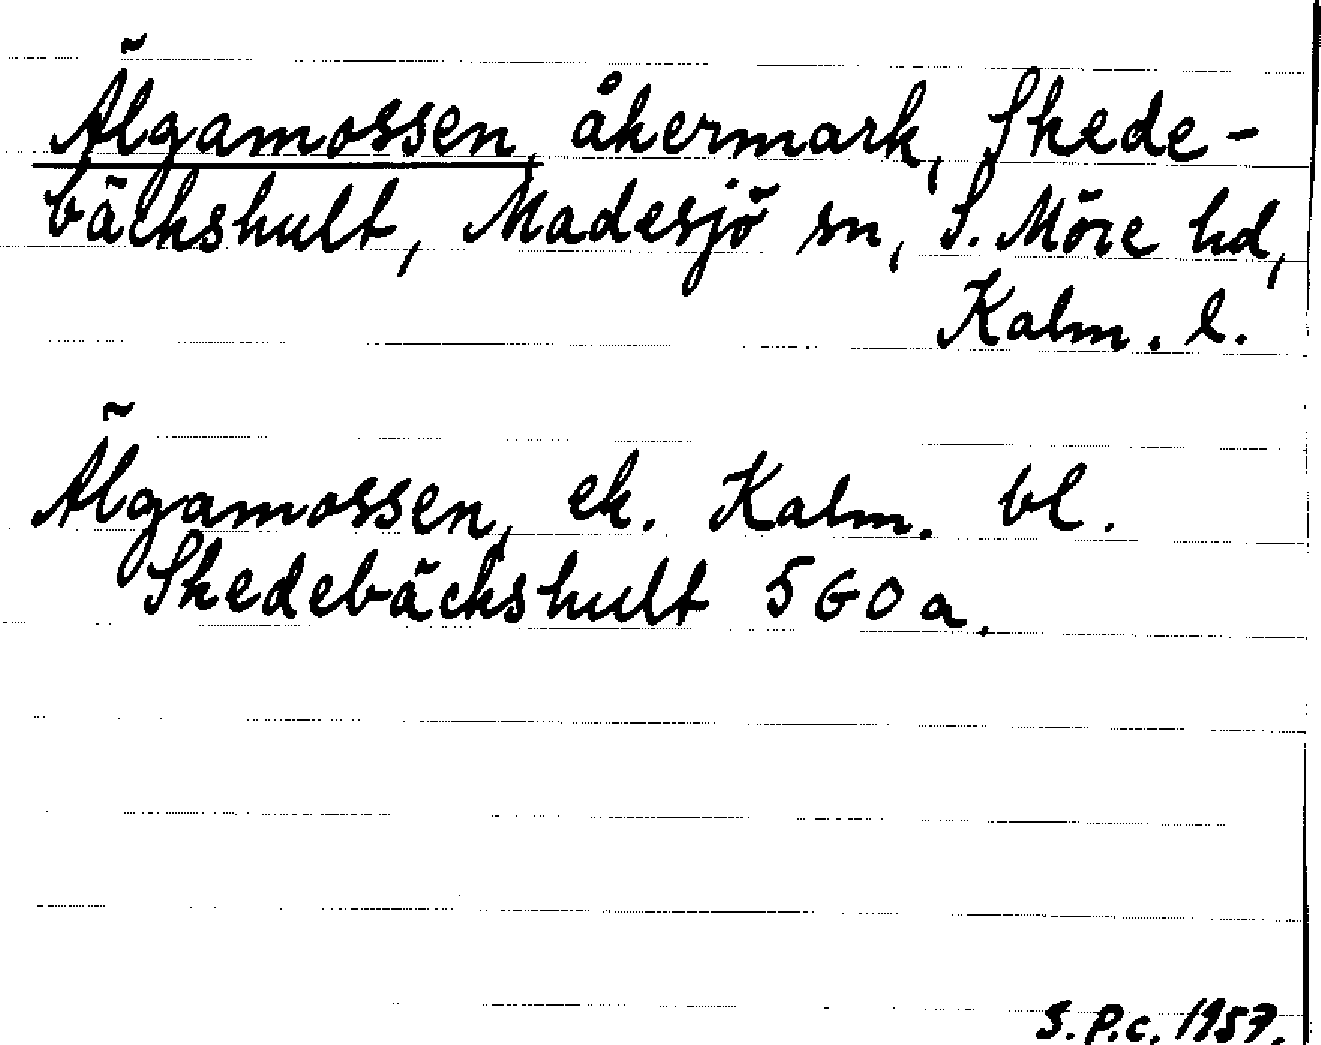 Älgamossen, åkermark, Skede-
bäckshult, Madesjö sn, S. Möre hd,
Kalm. l.
Älgamossen, ek. Kalm. bl.
Skedebäckshult 5 G O a.
S.P.c. 1957.